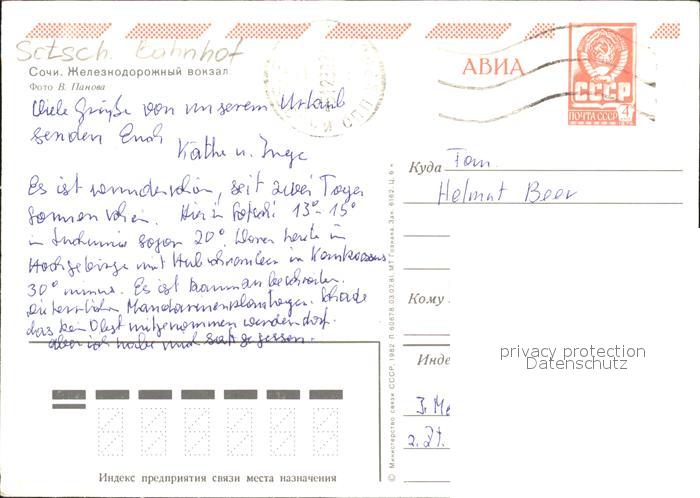 Sotsch. Bahnhof
Сочи. Железнодорожный вокзал
Фото В. Панова
Viele Grüße von unserem Urlaub
senden Euch
Käthe u. Inge
Es ist wunderschön, seit zwei Tagen
Sonnenschein. Hier in Sotschi 13°- 15°
in Suchumie sogar 20°. Waren heute im
Hochgebirge mit Hubschraubern im Kaukasus
30° minus. Es ist kaum zu beschreiben.
die herrlichen Mandarinenplantagen. Schade
das kein Obst mitgenommen werden darf.
aber ich habe mich satt gegessen.
АВИА
СССР
ПОЧТА СССР
4к
Куда Fam.
Helmut Beer
Кому
Инде
z. Zt.
privacy protection
Datenschutz
Индекс предприятия связи места назначения
© Министерство связи СССР, 1982